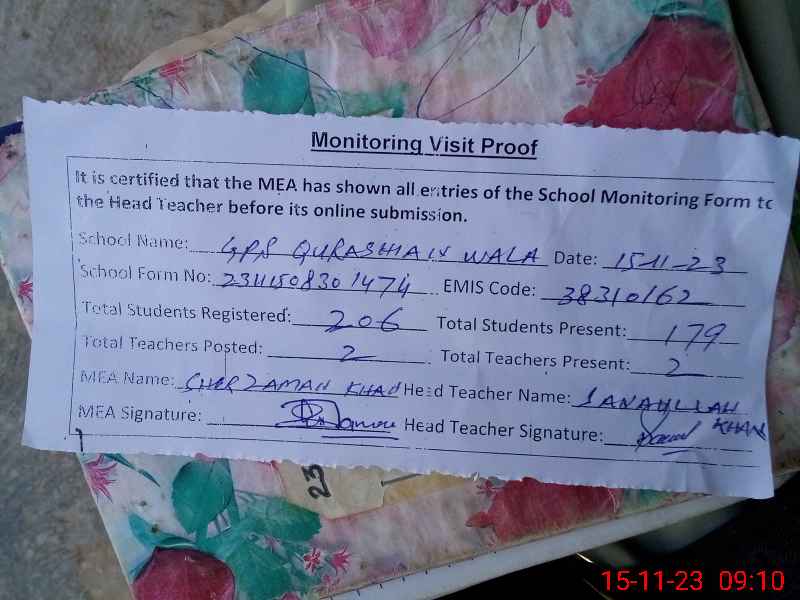 Monitoring Visit Proof
It is certified that the MEA has shown all entries of the School Monitoring Form to
the Head Teacher before its online submission.
School Name: GPS QURASHIAN WALA Date: 15-11-23
School Form No: EMIS Code: 38310162
Total Students Registered: 206 Total Students Present: 179
Total Teachers Posted: 2 Total Teachers Present: 2
MEA Name: SHER ZAMAN KHAN Head Teacher Name: SANAULLAH KHAN
MEA Signature: Head Teacher Signature:
23
15-11-23 09:10